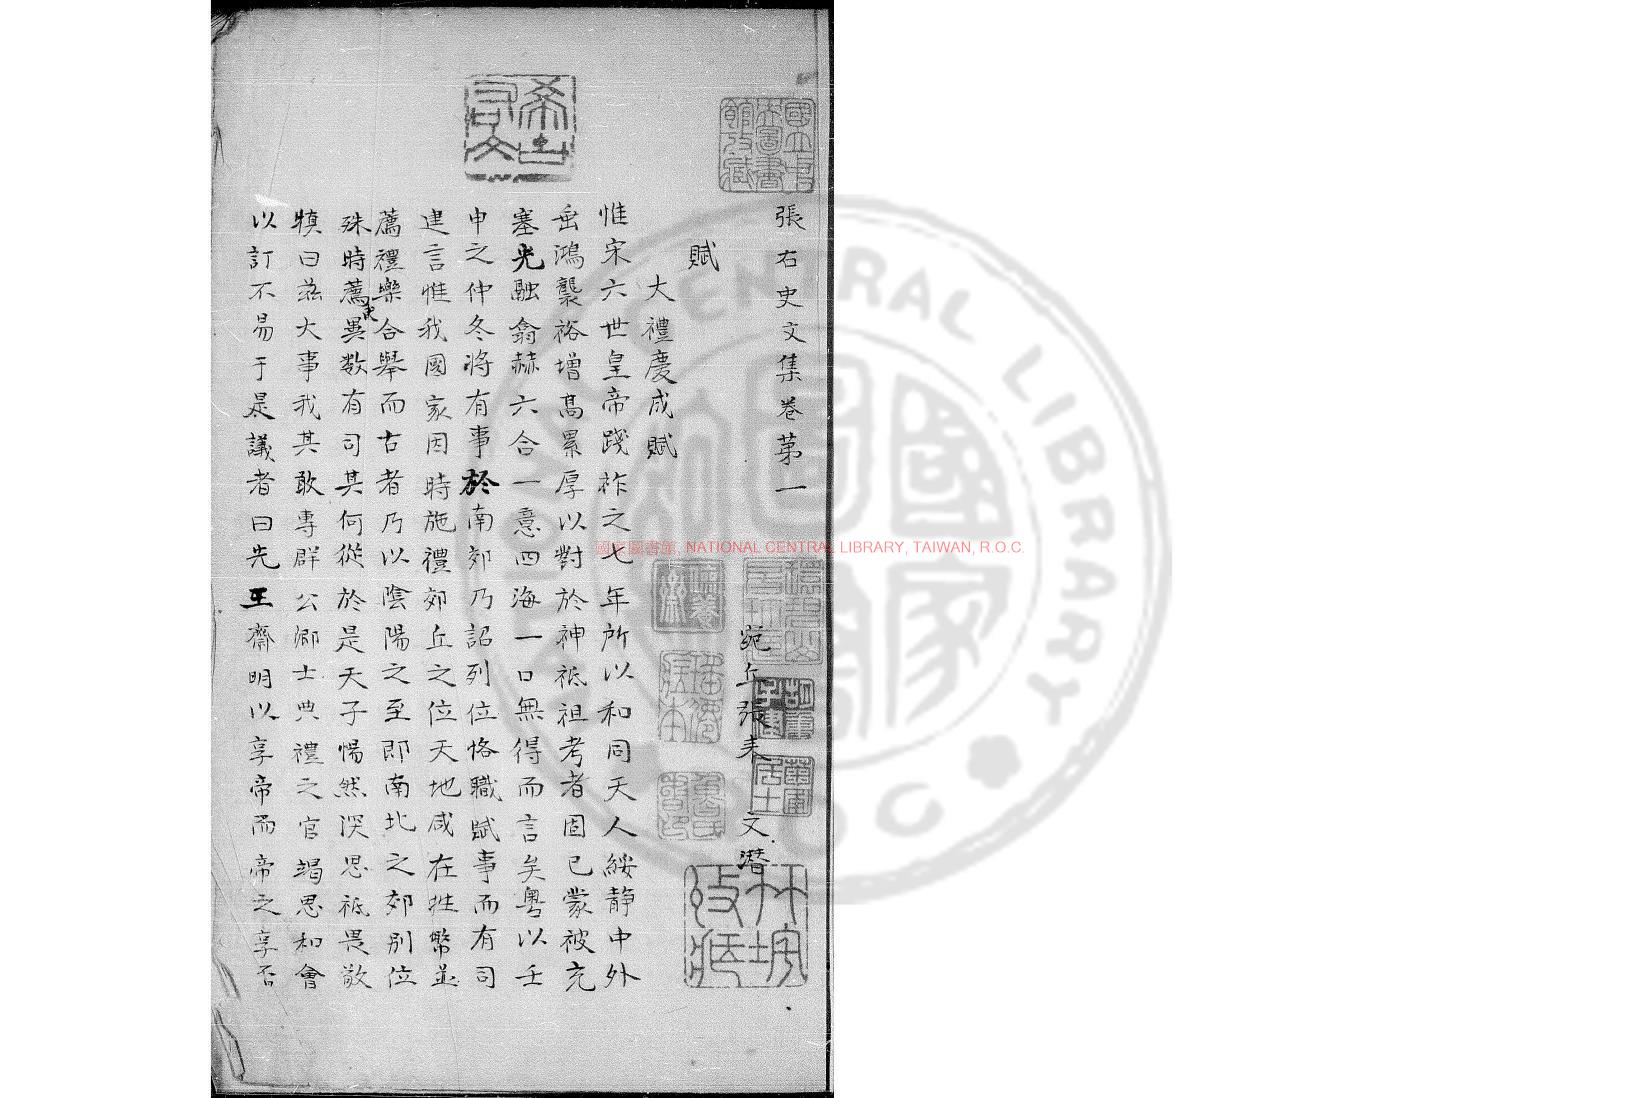 張右史文集卷第一
宛丘張耒 文潛
賦
大禮慶成賦
惟宋六世皇帝踐祚之七年所以和同天人綏静中外
岳鴻襲裕增髙累厚以對於神祗祖考者固已蒙被充
塞光融翕赫六合一意四海一口無得而言矣粤以壬
申之仲冬將有事於南郊乃詔列位恪職賦事而有司
建言惟我國家因時施禮郊丘之位天地咸在牲幣並
薦禮樂合舉而古者乃以陰陽之至即南北之郊别位
殊時薦異数有司其何從於是天子惕然深思祗畏敬
慎曰兹大事我其敢專群公卿士典禮之官竭思和會
以訂不易于是議者曰先王齋明以享帝而帝之享否
國家圖書館, NATIONAL CENTRAL LIBRARY, TAIWAN, R.O.C.
NATIONAL CENTRAL LIBRARY
R.O.C
國家圖書館
國立中央圖書館收藏
希古右文